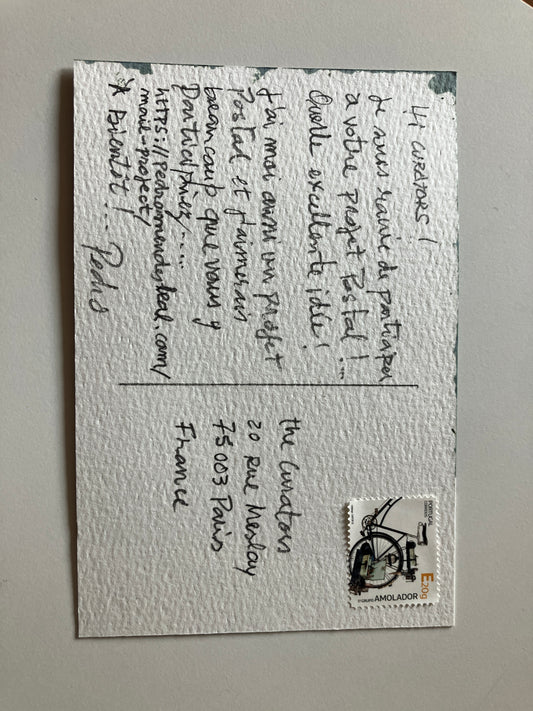 Hi CURATORS!
Je suis ravie de participer
a votre projet Postal!...
Quelle excellente idée!
J'ai moi aussi un projet
Postal et j'aimerais
beaucoup que vous y
Participiez.....
https://pedromendesleal.com/
mail-project/
À Bientôt!... Pedro
the Curators
20 Rue Meslay
75003 Paris
France
PORTUGAL
CORREIOS
E20g
AMOLADOR